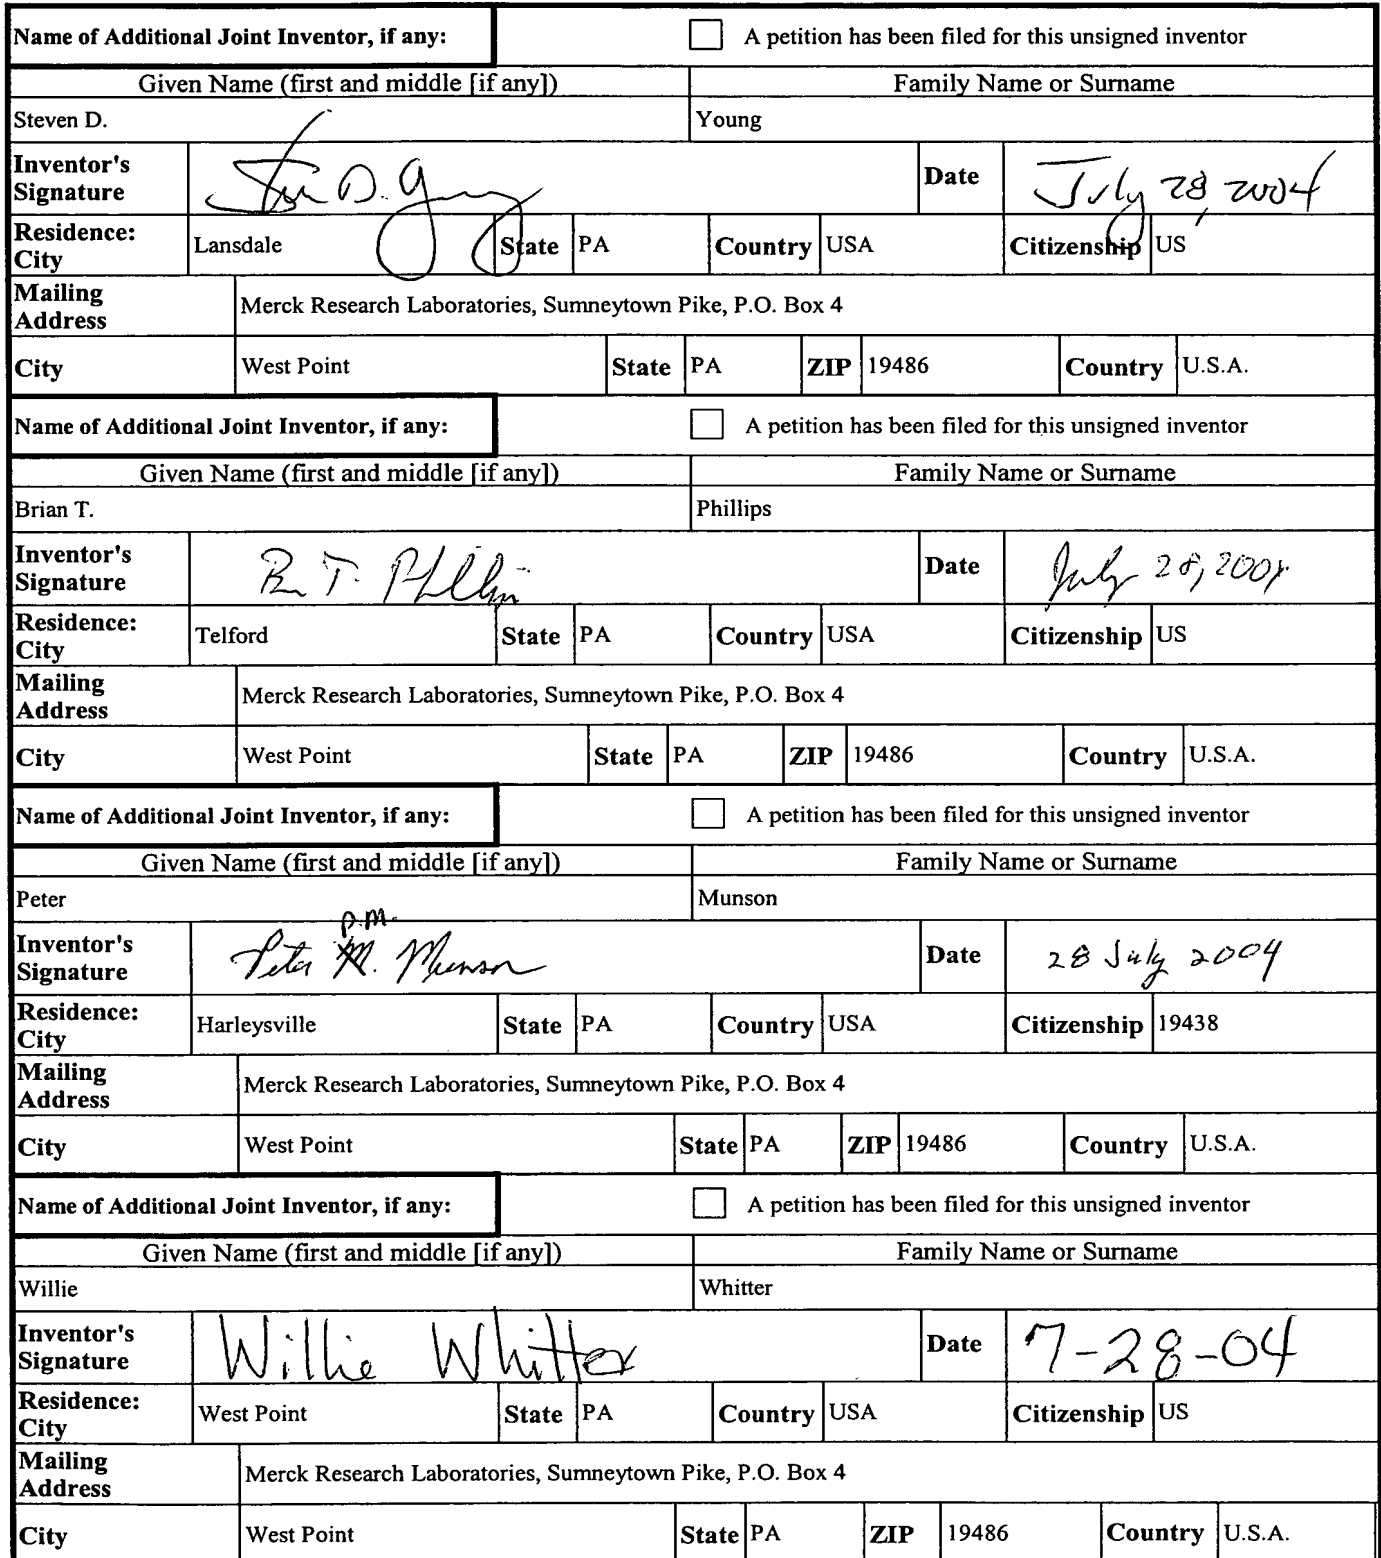 Name of Additional Joint Inventor, if any: A petition has been filed for this unsigned inventor
Given Name (first and middle [if any]) Family Name or Surname
Steven D. Young
Inventor's Signature Date July 28, 2004
Residence: City Lansdale State PA Country USA Citizenship US
Mailing Address Merck Research Laboratories, Sumneytown Pike, P.O. Box 4
City West Point State PA ZIP 19486 Country U.S.A.
Name of Additional Joint Inventor, if any: A petition has been filed for this unsigned inventor
Given Name (first and middle [if any]) Family Name or Surname
Brian T. Phillips
Inventor's Signature Date July 28, 2004
Residence: City Telford State PA Country USA Citizenship US
Mailing Address Merck Research Laboratories, Sumneytown Pike, P.O. Box 4
City West Point State PA ZIP 19486 Country U.S.A.
Name of Additional Joint Inventor, if any: A petition has been filed for this unsigned inventor
Given Name (first and middle [if any]) Family Name or Surname
Peter Munson
P.M.
Inventor's Signature Peter M. Munson Date 28 July 2004
Residence: City Harleysville State PA Country USA Citizenship 19438
Mailing Address Merck Research Laboratories, Sumneytown Pike, P.O. Box 4
City West Point State PA ZIP 19486 Country U.S.A.
Name of Additional Joint Inventor, if any: A petition has been filed for this unsigned inventor
Given Name (first and middle [if any]) Family Name or Surname
Willie Whitter
Inventor's Signature Willie Whitter Date 7-28-04
Residence: City West Point State PA Country USA Citizenship US
Mailing Address Merck Research Laboratories, Sumneytown Pike, P.O. Box 4
City West Point State PA ZIP 19486 Country U.S.A.